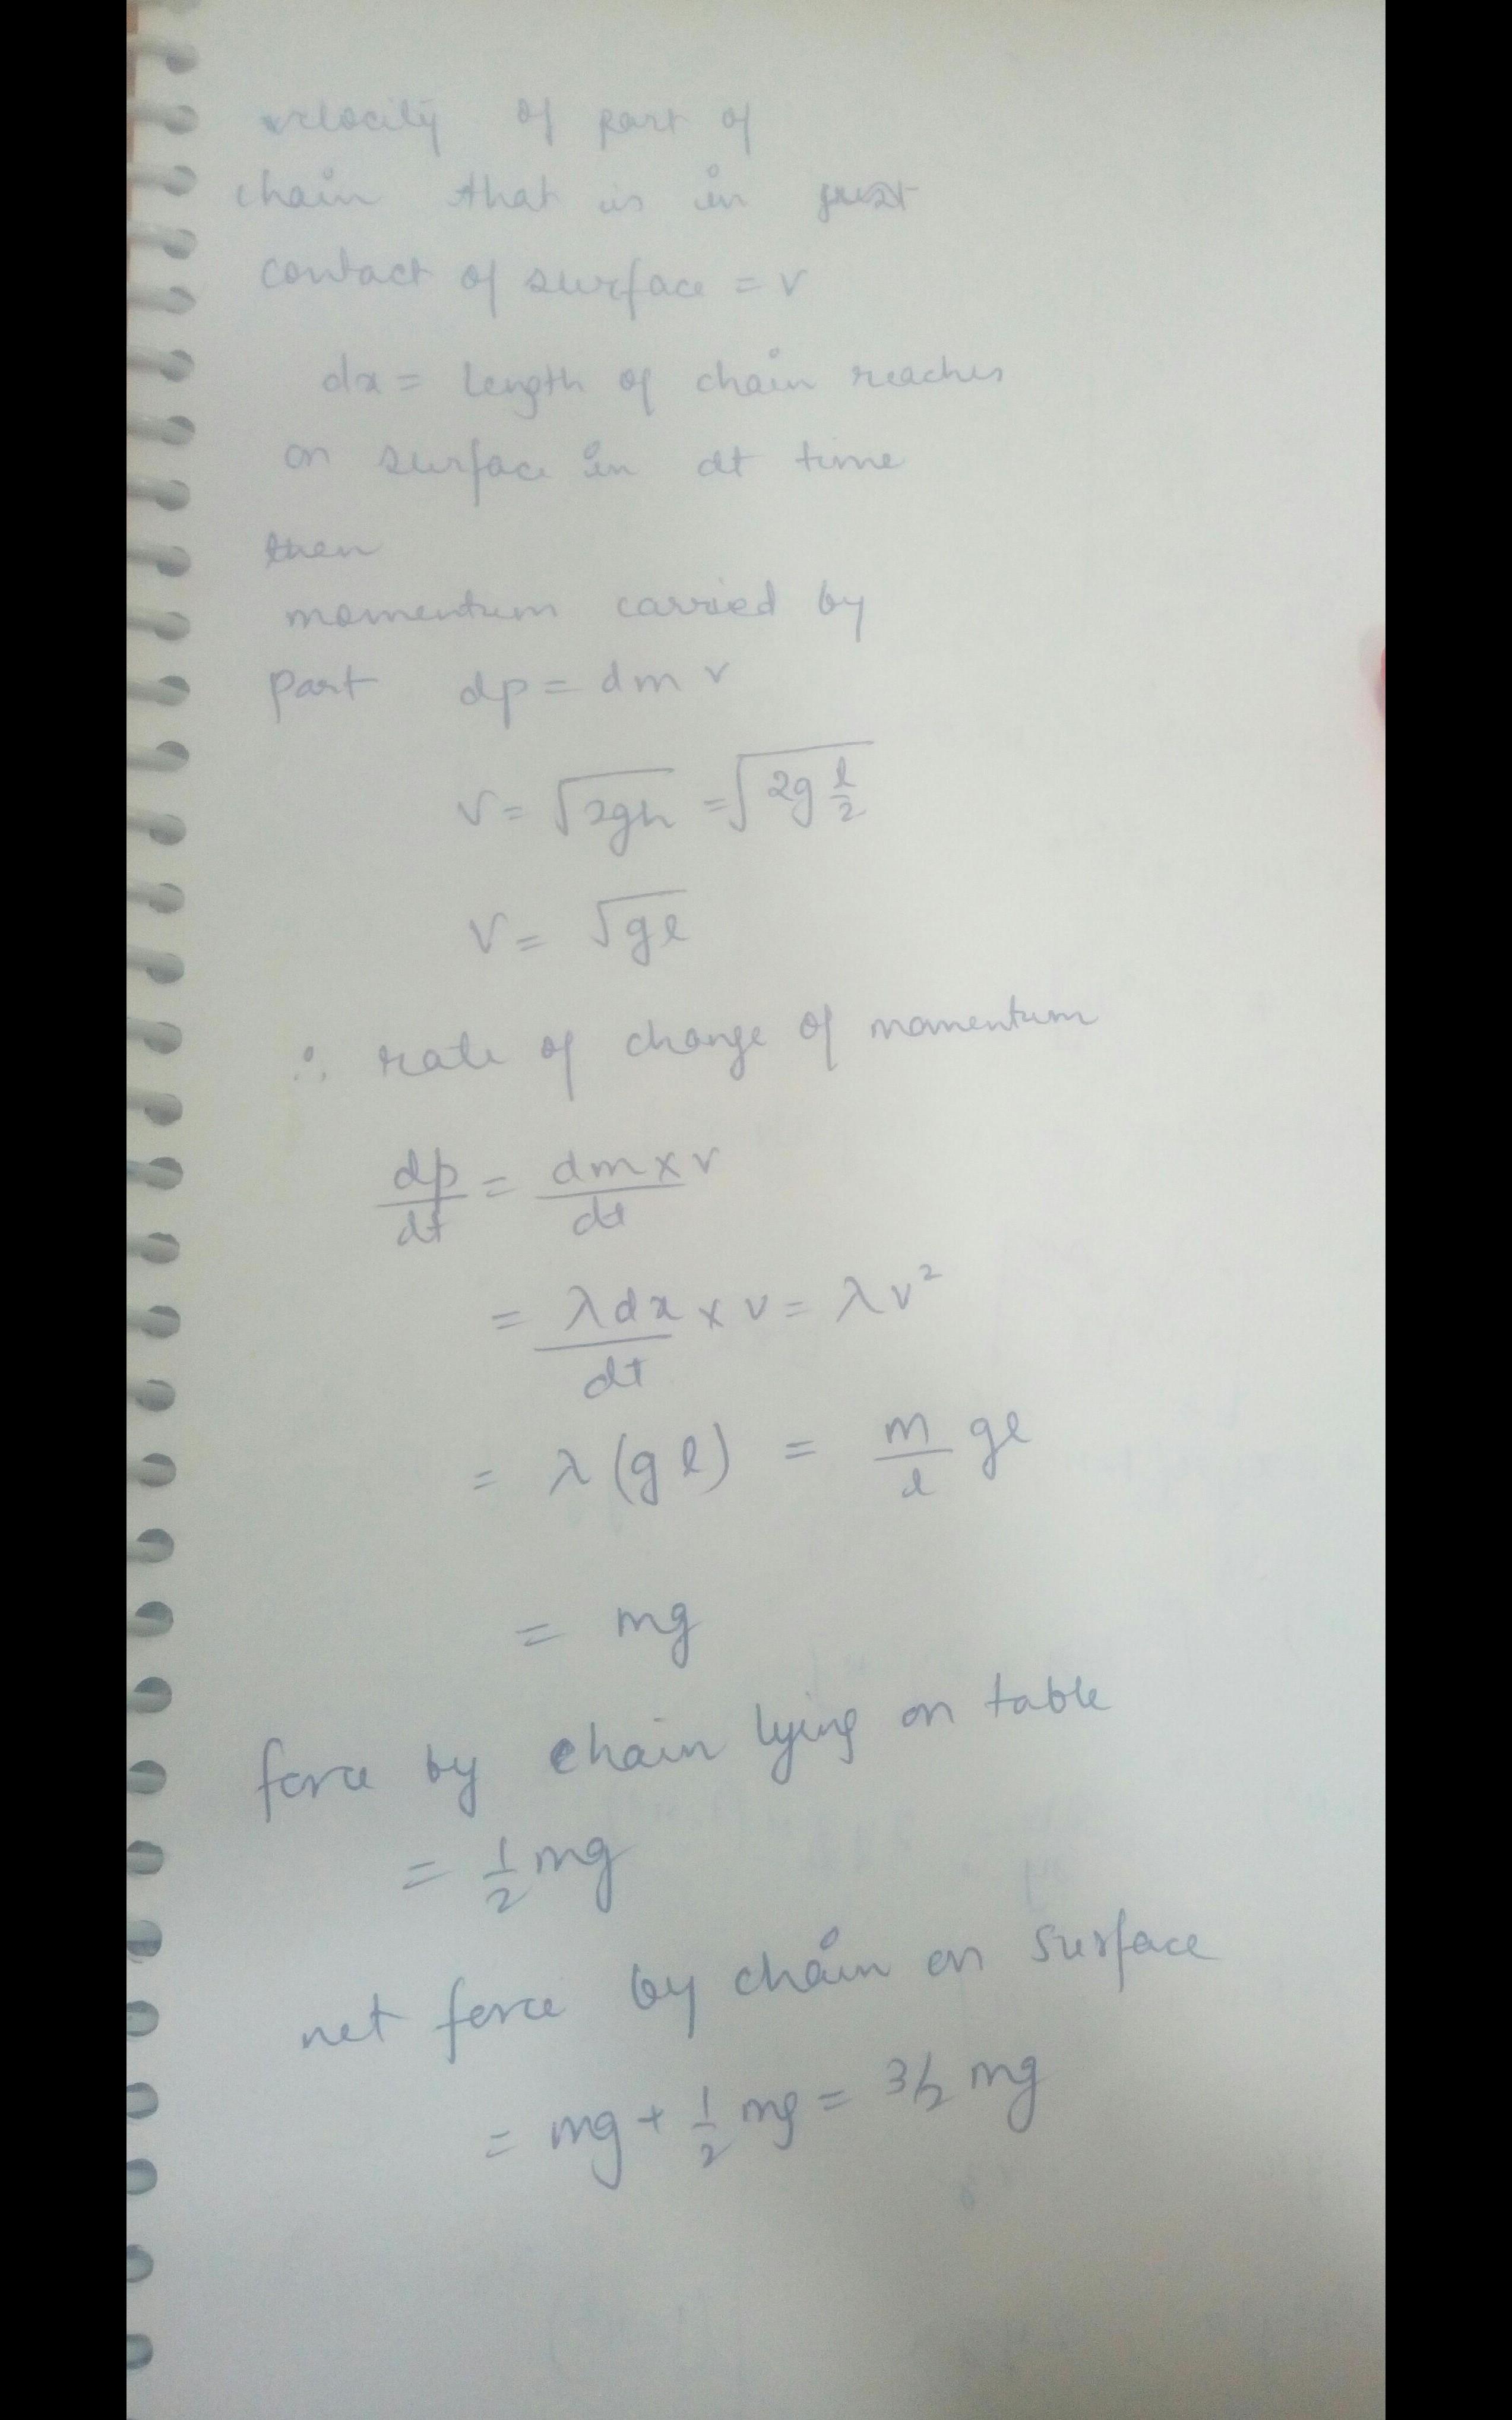 velocity of part of
chain that is in just
contact of surface = v
dx = length of chain reaches
on surface in dt time
then
momentum carried by
part dp = dm v
v = √2gh = √2g l/2
v = √gl
∴ rate of change of momentum
dp/dt = dm × v/dt
= λdx/dt × v = λv²
= λ(gl) = m/l gl
= mg
force by chain lying on table
= 1/2 mg
net force by chain on surface
= mg + 1/2 mg = 3/2 mg